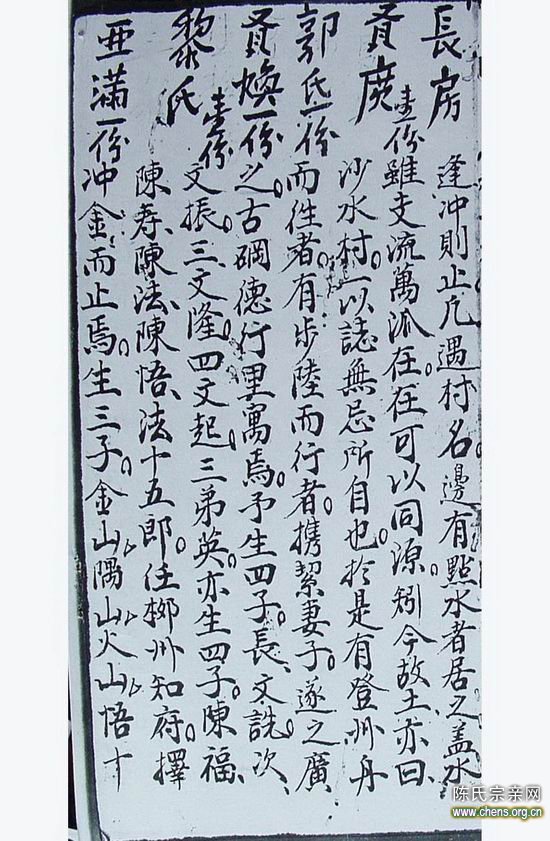 長房 逢冲則止凡遇村名邊有點水者居之盖水
壹份 雖支流萬派在在可以同源矧今故土亦曰
貴廣 沙水村一以誌無忌所自也於是有登州丹
郭氏一份 而往者有步陸而行者携絜妻子遂之廣
貴煥一份 之古碙德行里寓焉予生四子長文詵次
壹份 文振三文隆四文起三弟英亦生四子陳福
黎氏 陳寿陳法陳悟法十五郎任梆州知府擇
亞滿一份 冲金而止焉生三子金山隅山火山悟十
陈氏宗亲网
www.chens.org.cn